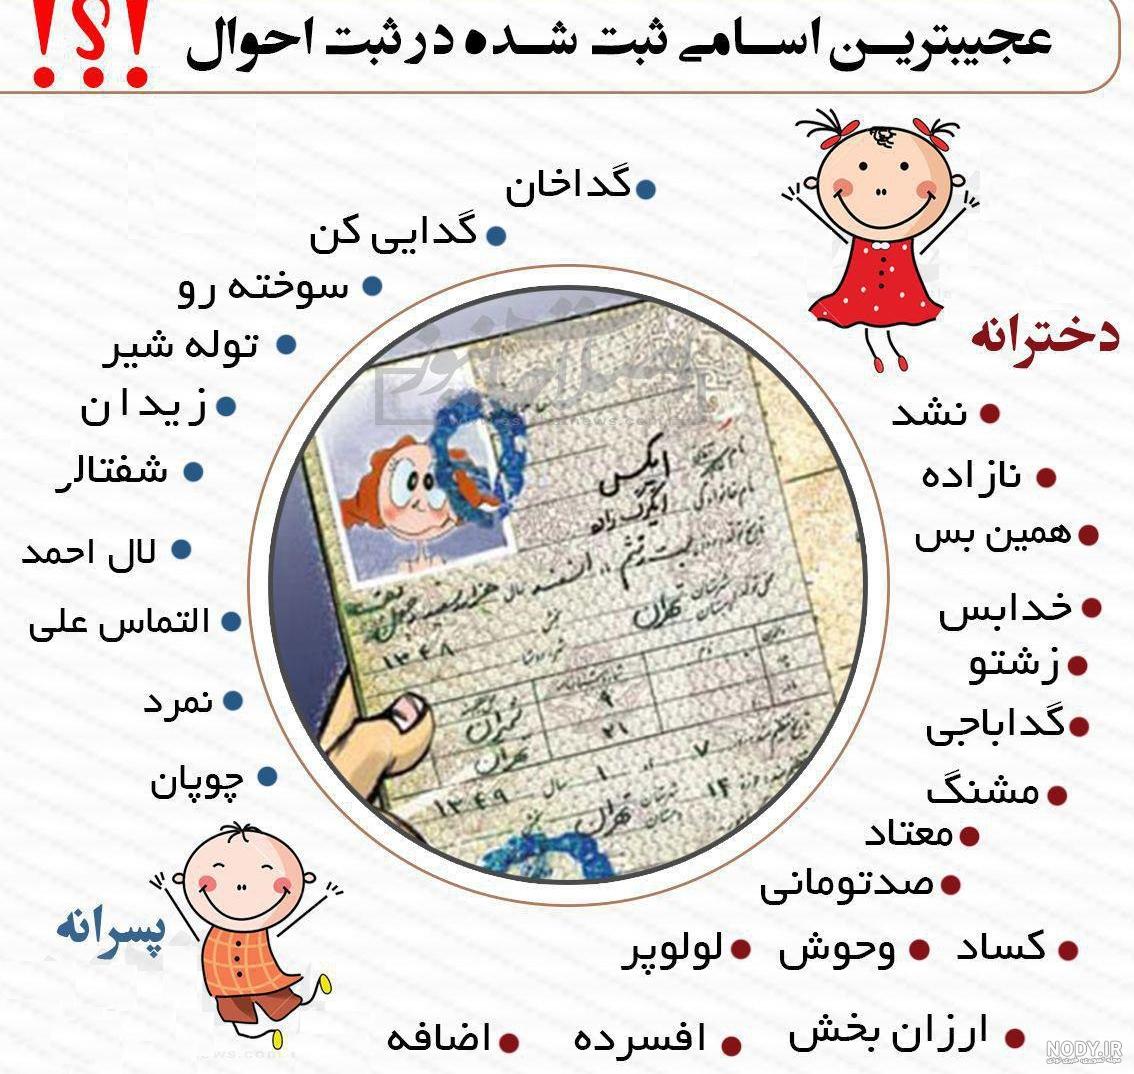 عجیبترین اسامی ثبت شده در ثبت احوال !؟!
دخترانه
نشد
نازاده
همین بس
خدابس
زشتو
گداباجی
مشنگ
معتاد
صدتومانی
کساد
وحوش
لولوپر
ارزان بخش
افسرده
اضافه
گداخان
گدایی کن
سوخته رو
توله شیر
زیدان
شفتالر
لال احمد
التماس علی
نمرد
چوپان
پسرانه
ایکس
ایگرگ زاده
تهران
۱۳۴۸
۹
۲۱
تهران
تهران
۷
۱
۱۳۴۹
۱۴
تهران
NODY.IR